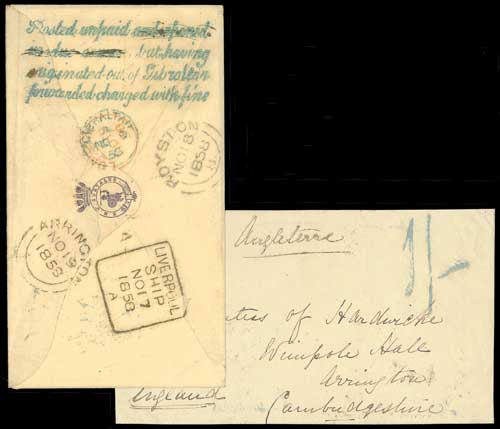 Posted unpaid
but having
originated out of Gibraltar
forwarded charged with fine
GIBRALTAR
ROYSTON
NO 18
1858
ARRINGTON
NO 19
1858
A
LIVERPOOL
SHIP
NO 17
1858
A
Angleterre
1/-
of Hardwicke
Wimpole Hall
Arrington
England Cambridgeshire